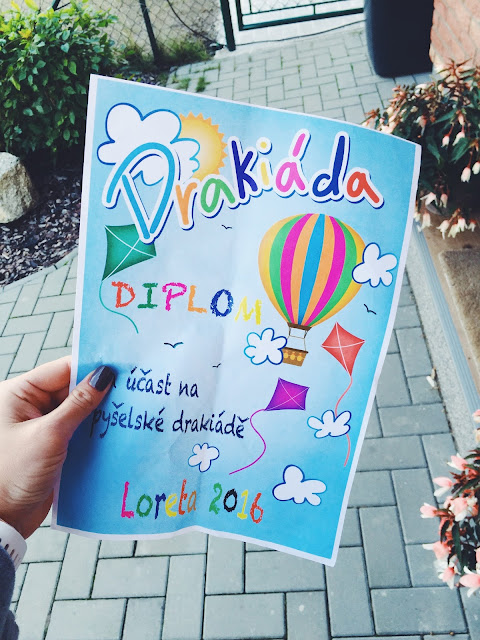 Drakiáda
DIPLOM
účast na
pyšelské drakiádě
Loreta 2016